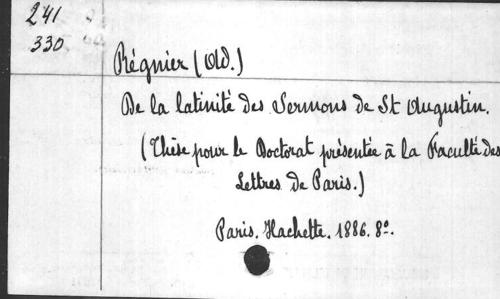 241
330
Régnier (Ad.)
De la latinité des Sermons de St Augustin.
(Thèse pour le Doctorat présentée à la Faculté des
Lettres de Paris.)
Paris. Hachette. 1886. 8º.